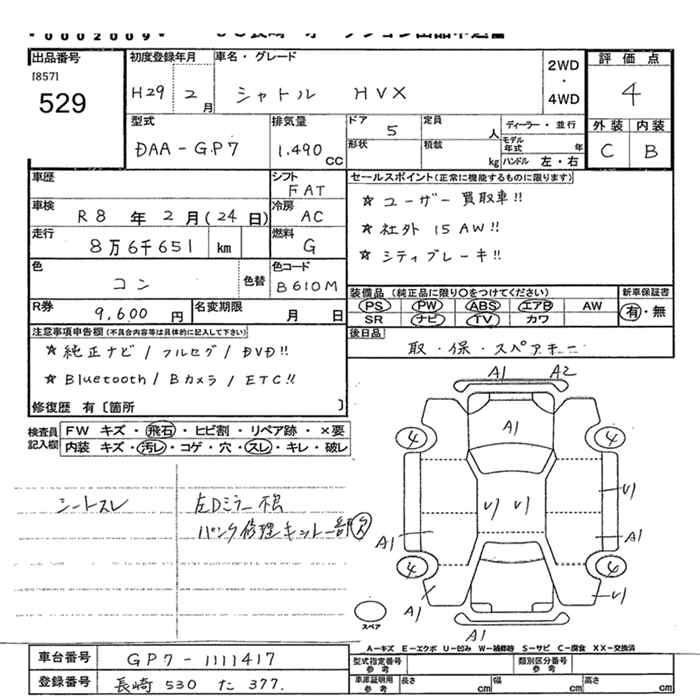 *0002009*
出品番号
[857]
529
初度登録年月
H29 2月
車名・グレード
シャトル HVX
2WD
・
4WD
評価点
4
外装 内装
C B
型式
DAA-GP7
排気量
1.490 CC
ドア 5
形状
定員 人
積載 kg
ディーラー・並行
モデル年式 年
ハンドル 左・右
車歴
シフト FAT
車検 R8年 2月(24日)
冷房 AC
走行 8万6千651 km
燃料 G
色 コン 色替
色コード B610M
R券 9,600円
名変期限 月 日
セールスポイント(正常に機能するものに限ります)
☆ ユーザー買取車!!
☆ 社外 15AW!!
☆ シティブレーキ!!
装備品(純正品に限り○をつけてください)
PS PW ABS エアB AW
SR ナビ TV カワ
新車保証書
有・無
後日品
取・保・スペアキー
注意事項申告欄(不具合内容等は具体的に記入して下さい)
☆ 純正ナビ/フルセグ/DVD!!
☆ Bluetooth/Bカメラ/ETC!!
修復歴 有〔箇所 〕
検査員記入欄
FW キズ・飛石・ヒビ割・リペア跡・×要
内装 キズ・汚レ・コゲ・穴・スレ・キレ・破レ
シートスレ
左Dミラー不良
パンク修理キット一部欠
A1 A2
A1
4 4
U1 U1 U1
A1 A1
4 4
A1 U1
A1
スペア
A-キズ E-エクボ U-凹み W-補修跡 S-サビ C-腐食 XX-交換済
車台番号 GP7-1111417
登録番号 長崎 530 た 377.
型式指定番号 参考
類別区分番号 参考
車庫証明用 参考
長さ cm 幅 cm 高さ cm